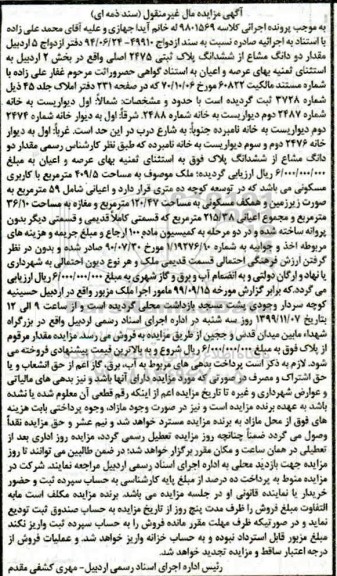 آگهی مزایده مال غیرمنقول (سند ذمه ای)
به موجب پرونده اجرائی کلاسه ۹۸۰۱۵۶۹ له خانم آیدا جهازی و علیه آقای محمد علی زاده
با استناد به اجرائیه صادره نسبت به سند ازدواج ۴۹۹۱۰-۹۴/۰۶/۲۴ دفتر ازدواج ۵ اردبیل
مقدار دو دانگ مشاع از ششدانگ پلاک ثبتی ۲۴۷۵ اصلی واقع در بخش ۲ اردبیل به
استثنای ثمنیه بهای عرصه و اعیان به استناد گواهی حصروراثت مرحوم غفار علی زاده با
شماره مستند مالکیت ۶۰۸۲۲ مورخ ۷۰/۱۰/۰۶ که در صفحه ۲۳۱ دفتر املاک جلد ۴۵ ذیل
شماره ۳۷۲۸ ثبت گردیده است با حدود و مشخصات: شمالاً: اول دیواریست به خانه
شماره ۲۴۸۷ دوم دیواریست به خانه شماره ۲۴۸۸. شرقاً: اول به دیوار خانه شماره ۲۴۷۴
دوم دیواریست به خانه نامبرده جنوباً: به شارع درب در این حد است. غرباً: اول به دیوار
خانه ۲۴۷۶ دوم و سوم دیواریست به خانه نامبرده که طبق نظر کارشناس رسمی مقدار دو
دانگ مشاع از ششدانگ پلاک فوق به استثنای ثمنیه بهای عرصه و اعیان به مبلغ
۶/۰۰۰/۰۰۰/۰۰۰ ریال ارزیابی گردیده: ملک موصوف به مساحت ۴۰۹/۵ مترمربع با کاربری
مسکونی می باشد که در توسعه کوچه ده متری قرار دارد و اعیانی شامل ۵۹ مترمربع به
صورت زیرزمین و همکف مسکونی به مساحت ۱۲۰/۴۷ مترمربع و مغازه به مساحت ۳۶/۱۰
مترمربع و مجموع اعیانی ۲۱۵/۳۸ مترمربع که قسمتی کاملاً قدیمی و قسمتی دیگر بدون
پروانه ساخته شده و در دو مرحله به کمیسیون ماده ۱۰۰ ارجاع و مبلغ جریمه و هزینه های
مربوطه اخذ و جوابیه به شماره ۱/۱۹۲۷۶/۱۰ مورخ ۹۰/۰۷/۳۰ صادر شده و بدون در نظر
گرفتن ارزش فرهنگی احتمالی قسمت قدیمی ملک و هر نوع دیون احتمالی به شهرداری
یا نهاد و ارگان دولتی و به انضمام آب و برق و گاز شهری به مبلغ ۶/۰۰۰/۰۰۰/۰۰۰ ریال ارزیابی
می گردد. که برابر گزارش مورخه ۹۹/۰۹/۱۵ مامور اجرا ملک مزبور واقع در اردبیل حسینیه
کوچه سردار وجودی پشت مسجد بازداشت محلی گردیده است و از ساعت ۹ الی ۱۲
بتاریخ ۱۳۹۹/۱۱/۰۷ روز سه شنبه در اداره اجرای اسناد رسمی اردبیل واقع در بزرگراه
شهداء مابین میدان قدس و ججین از طریق مزایده به فروش می رسد. مزایده مقدار مرقوم
از پلاک فوق به مبلغ ۶/۰۰۰/۰۰۰/۰۰۰ ریال شروع و به بالاترین قیمت پیشنهادی فروخته می
شود. لازم به ذکر است پرداخت بدهی های مربوط به آب، برق، گاز اعم از حق انشعاب و یا
حق اشتراک و مصرف در صورتی که مورد مزایده دارای آنها باشد و نیز بدهی های مالیاتی
و عوارض شهرداری و غیره تا تاریخ مزایده اعم از اینکه رقم قطعی آن معلوم شده یا نشده
باشد به عهده برنده مزایده است و نیز در صورت وجود مازاد، وجوه پرداختی بابت هزینه
های فوق از محل مازاد به برنده مزایده مسترد خواهد شد و نیم عشر و حق مزایده نقداً
وصول می گردد ضمناً چنانچه روز مزایده تعطیل رسمی گردد، مزایده روز اداری بعد از
تعطیلی در همان ساعت و مکان مقرر برگزار خواهد شد؛ در ضمن طالبین می توانند تا روز
مزایده جهت بازدید محلی به اداره اجرای اسناد رسمی اردبیل مراجعه نمایند. شرکت در
مزایده منوط به پرداخت ده درصد از مبلغ پایه کارشناسی به حساب سپرده ثبت و حضور
خریدار یا نماینده قانونی او در جلسه مزایده می باشد. برنده مزایده مکلف است مابه
التفاوت مبلغ فروش را ظرف مدت پنج روز از تاریخ مزایده به حساب صندوق ثبت تودیع
نماید و در صورتیکه ظرف مهلت مقرر مانده فروش را به حساب سپرده ثبت واریز نکند
مبلغ مزبور قابل استرداد نبوده و به حساب خزانه واریز خواهد شد. و عملیات فروش از
درجه اعتبار ساقط و مزایده تجدید خواهد شد.
رئیس اداره اجرای اسناد رسمی اردبیل- مهری کشفی مقدم